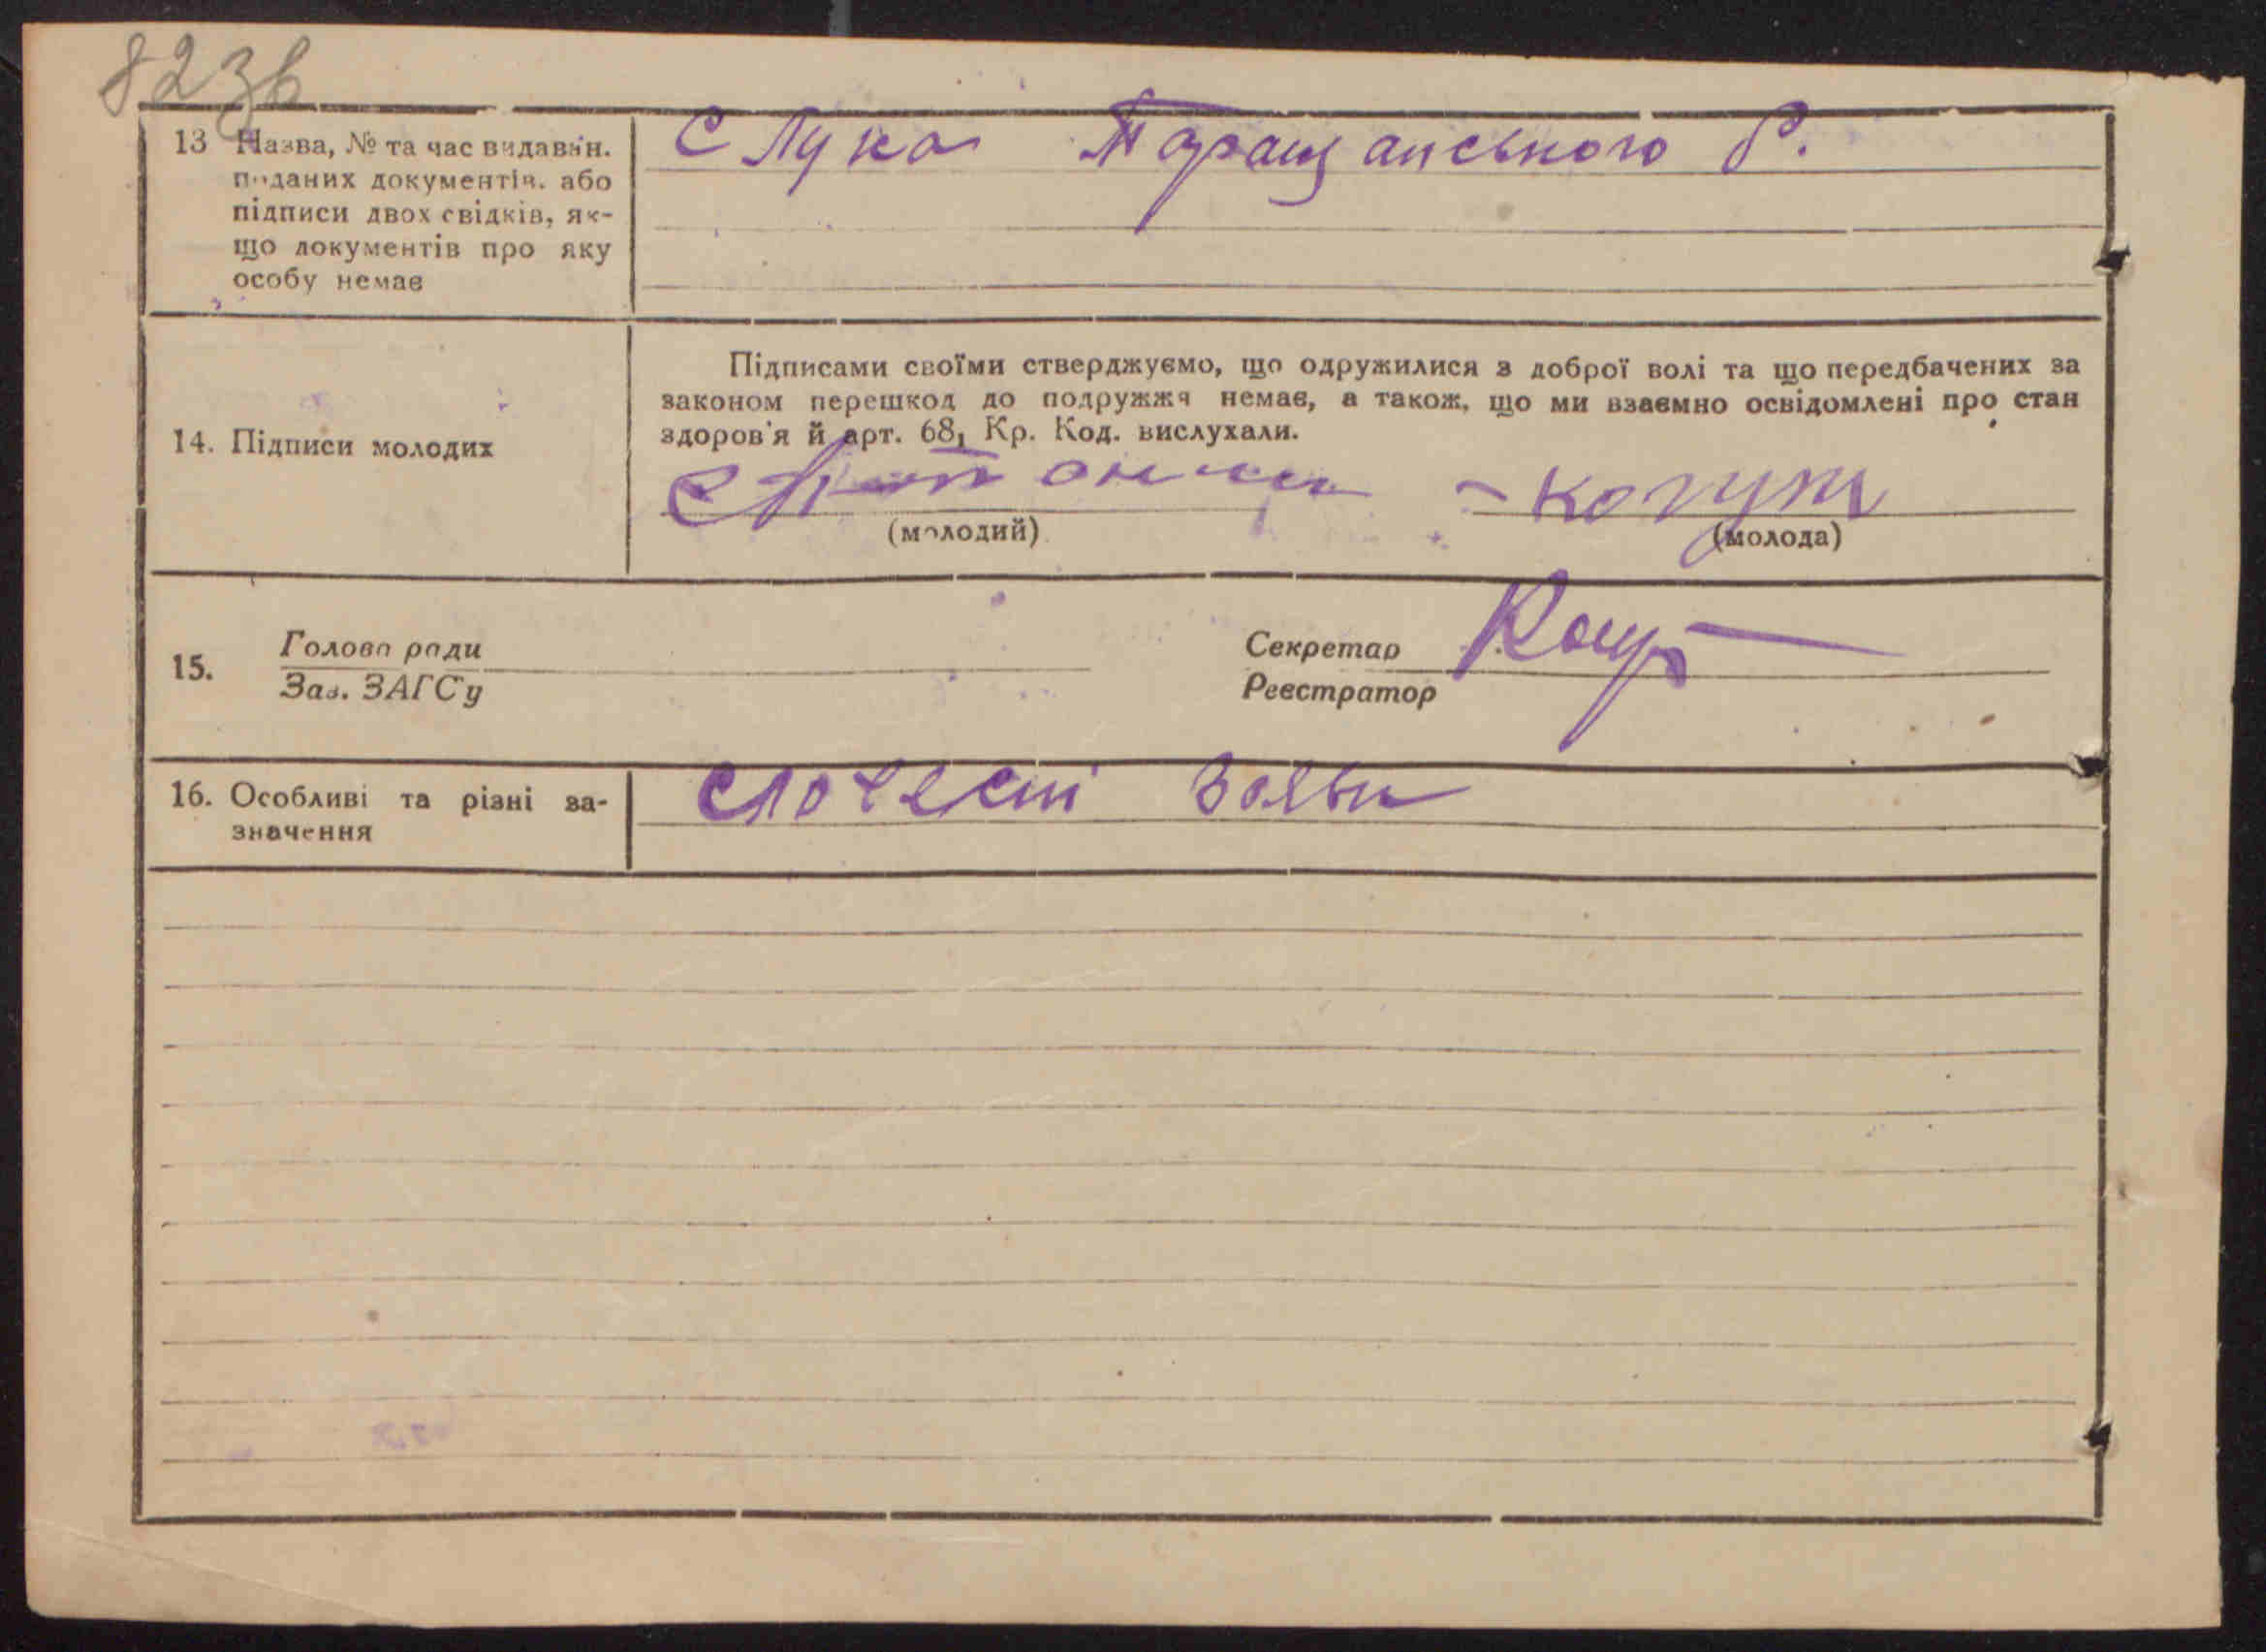 823б
13 Назва, № та час видаван.
поданих документів, або
підписи двох свідків, як-
що документів про яку
особу немає
С Лука Таращанського Р.
14. Підписи молодих
Підписами своїми стверджуємо, що одружилися з доброї волі та що передбачених за
законом перешкод до подружжя немає, а також, що ми взаємно освідомлені про стан
здоров'я й арт. 68₁ Кр. Код. вислухали.
Когут
(молодий) (молода)
15. Голова ради
Зав. ЗАГСу
Секретар
Реєстратор
16. Особливі та різні за-
значення
словесні заяви